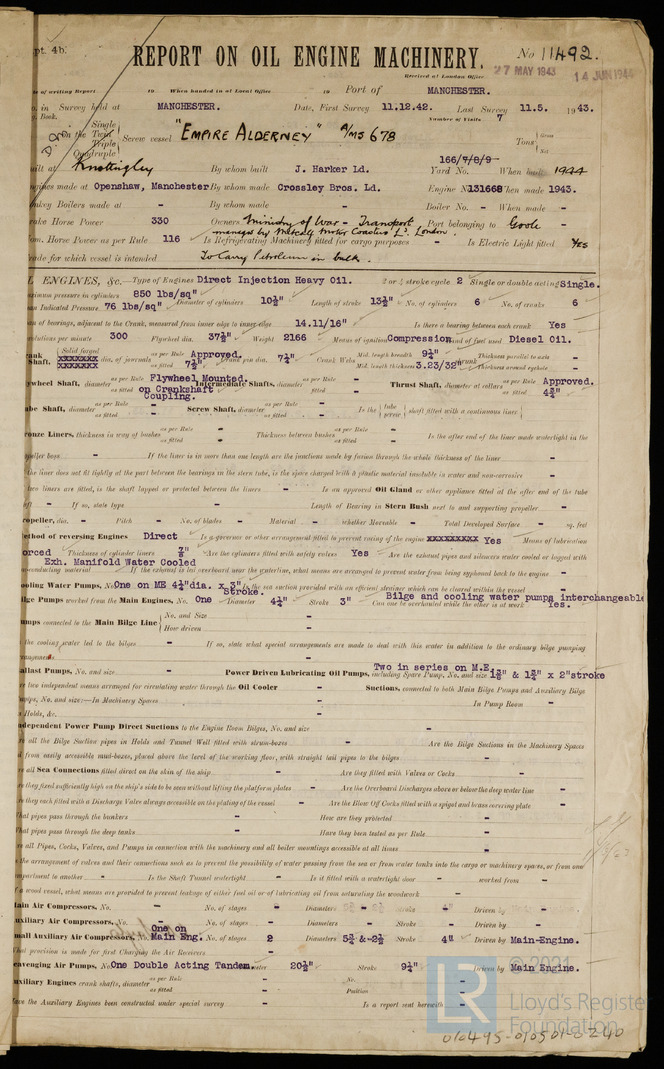 pt. 4b.
REPORT ON OIL ENGINE MACHINERY.
No 11492.
Received at London Office
27 MAY 1943
14 JUN 1944
of writing Report 19 When handed in at Local Office 19 Port of MANCHESTER.
in Survey held at MANCHESTER. Date, First Survey 11.12.42. Last Survey 11.5. 1943.
Book. Number of Visits 7
on the Single Twin Triple Quadruple Screw vessel "EMPIRE ALDERNEY" A/MS 678 Tons Gross Net
166/7/8/9
built at Knottingley By whom built J. Harker Ld. Yard No. When built 1944
Engines made at Openshaw, Manchester By whom made Crossley Bros. Ld. Engine No 131668 When made 1943.
Donkey Boilers made at - By whom made - Boiler No. - When made -
Brake Horse Power 330 Owners Ministry of War-Transport Port belonging to Goole
managed by Metcalf Motor Coasters Ld. London.
Nom. Horse Power as per Rule 116 Is Refrigerating Machinery fitted for cargo purposes - Is Electric Light fitted Yes
Trade for which vessel is intended To Carry Petroleum in bulk.
OIL ENGINES, &c.—Type of Engines Direct Injection Heavy Oil. 2 or 4 stroke cycle 2 Single or double acting Single.
Maximum pressure in cylinders 850 lbs/sq" Diameter of cylinders 10½" Length of stroke 13½" No. of cylinders 6 No. of cranks 6
Mean Indicated Pressure 76 lbs/sq"
Span of bearings, adjacent to the Crank, measured from inner edge to inner edge 14.11/16" Is there a bearing between each crank Yes
Revolutions per minute 300 Flywheel dia. 37½" Weight 2166 Means of ignition Compression Kind of fuel used Diesel Oil.
Crank Shaft, Solid forged dia. of journals as per Rule Approved. as fitted 7½" Crank pin dia. 7¼" Crank Webs Mid. length breadth 9¼" Mid. length thickness 3.23/32" Thickness parallel to axis - Thickness around eyehole -
Flywheel Shaft, diameter as per Rule Flywheel Mounted. as fitted on Crankshaft Coupling. Intermediate Shafts, diameter as per Rule as fitted Thrust Shaft, diameter at collars as per Rule Approved. as fitted 4¾"
Tube Shaft, diameter as per Rule as fitted - Screw Shaft, diameter as per Rule as fitted - Is the tube screw shaft fitted with a continuous liner -
Bronze Liners, thickness in way of bushes as per Rule - as fitted Thickness between bushes as per Rule as fitted - Is the after end of the liner made watertight in the
propeller boss - If the liner is in more than one length are the junctions made by fusion through the whole thickness of the liner -
If the liner does not fit tightly at the part between the bearings in the stern tube, is the space charged with a plastic material insoluble in water and non-corrosive -
If two liners are fitted, is the shaft lapped or protected between the liners - Is an approved Oil Gland or other appliance fitted at the after end of the tube
shaft - If so, state type - Length of Bearing in Stern Bush next to and supporting propeller -
Propeller, dia. - Pitch - No. of blades - Material - whether Moveable - Total Developed Surface - sq. feet
Method of reversing Engines Direct Is a governor or other arrangement fitted to prevent racing of the engine xxxxxxxxx Yes Means of lubrication
forced Thickness of cylinder liners ⅞" Are the cylinders fitted with safety valves Yes Are the exhaust pipes and silencers water cooled or lagged with
Exh. Manifold Water Cooled
non-conducting material If the exhaust is led overboard near the waterline, what means are arranged to prevent water being syphoned back to the engine -
Cooling Water Pumps, No. One on ME 4¼"dia. x 3" Stroke. Is the sea suction provided with an efficient strainer which can be cleared within the vessel -
Bilge Pumps worked from the Main Engines, No. One Diameter 4¼" Stroke 3" Can one be overhauled while the other is at work Bilge and cooling water pumps interchangeable Yes.
Pumps connected to the Main Bilge Line No. and Size - How driven -
Is the cooling water led to the bilges - If so, state what special arrangements are made to deal with this water in addition to the ordinary bilge pumping
arrangements -
Ballast Pumps, No. and size - Power Driven Lubricating Oil Pumps, including Spare Pump, No. and size Two in series on M.E. 1⅜" & 1¾" x 2"stroke
Are two independent means arranged for circulating water through the Oil Cooler - Suctions, connected to both Main Bilge Pumps and Auxiliary Bilge
Pumps, No. and size:—In Machinery Spaces - In Pump Room -
In Holds, &c. -
Independent Power Pump Direct Suctions to the Engine Room Bilges, No. and size -
Are all the Bilge Suction pipes in Holds and Tunnel Well fitted with strum-boxes - Are the Bilge Suctions in the Machinery Spaces
led from easily accessible mud-boxes, placed above the level of the working floor, with straight tail pipes to the bilges -
Are all Sea Connections fitted direct on the skin of the ship - Are they fitted with Valves or Cocks -
Are they fixed sufficiently high on the ship's side to be seen without lifting the platform plates - Are the Overboard Discharges above or below the deep water line -
Are they each fitted with a Discharge Valve always accessible on the plating of the vessel - Are the Blow Off Cocks fitted with a spigot and brass covering plate -
What pipes pass through the bunkers - How are they protected -
What pipes pass through the deep tanks - Have they been tested as per Rule -
Are all Pipes, Cocks, Valves, and Pumps in connection with the machinery and all boiler mountings accessible at all times -
Is the arrangement of valves and their connections such as to prevent the possibility of water passing from the sea or from water tanks into the cargo or machinery spaces, or from one
compartment to another - Is the Shaft Tunnel watertight - Is it fitted with a watertight door - worked from -
If a wood vessel, what means are provided to prevent leakage of either fuel oil or of lubricating oil from saturating the woodwork -
Main Air Compressors, No. - No. of stages - Diameters - Stroke - Driven by -
Auxiliary Air Compressors, No. - No. of stages - Diameters - Stroke - Driven by -
Small Auxiliary Air Compressors, No. One on Main Eng. No. of stages 2 Diameters 5¾ & 2½ Stroke 4" Driven by Main-Engine.
What provision is made for first Charging the Air Receivers
Scavenging Air Pumps, No. One Double Acting Tandem. Diameter 20½" Stroke 9¼" Driven by Main Engine.
Auxiliary Engines crank shafts, diameter as per Rule as fitted - No. Position -
Have the Auxiliary Engines been constructed under special survey - Is a report sent herewith -
© 2021
LR
Lloyd's Register
Foundation
010495-010501-0240